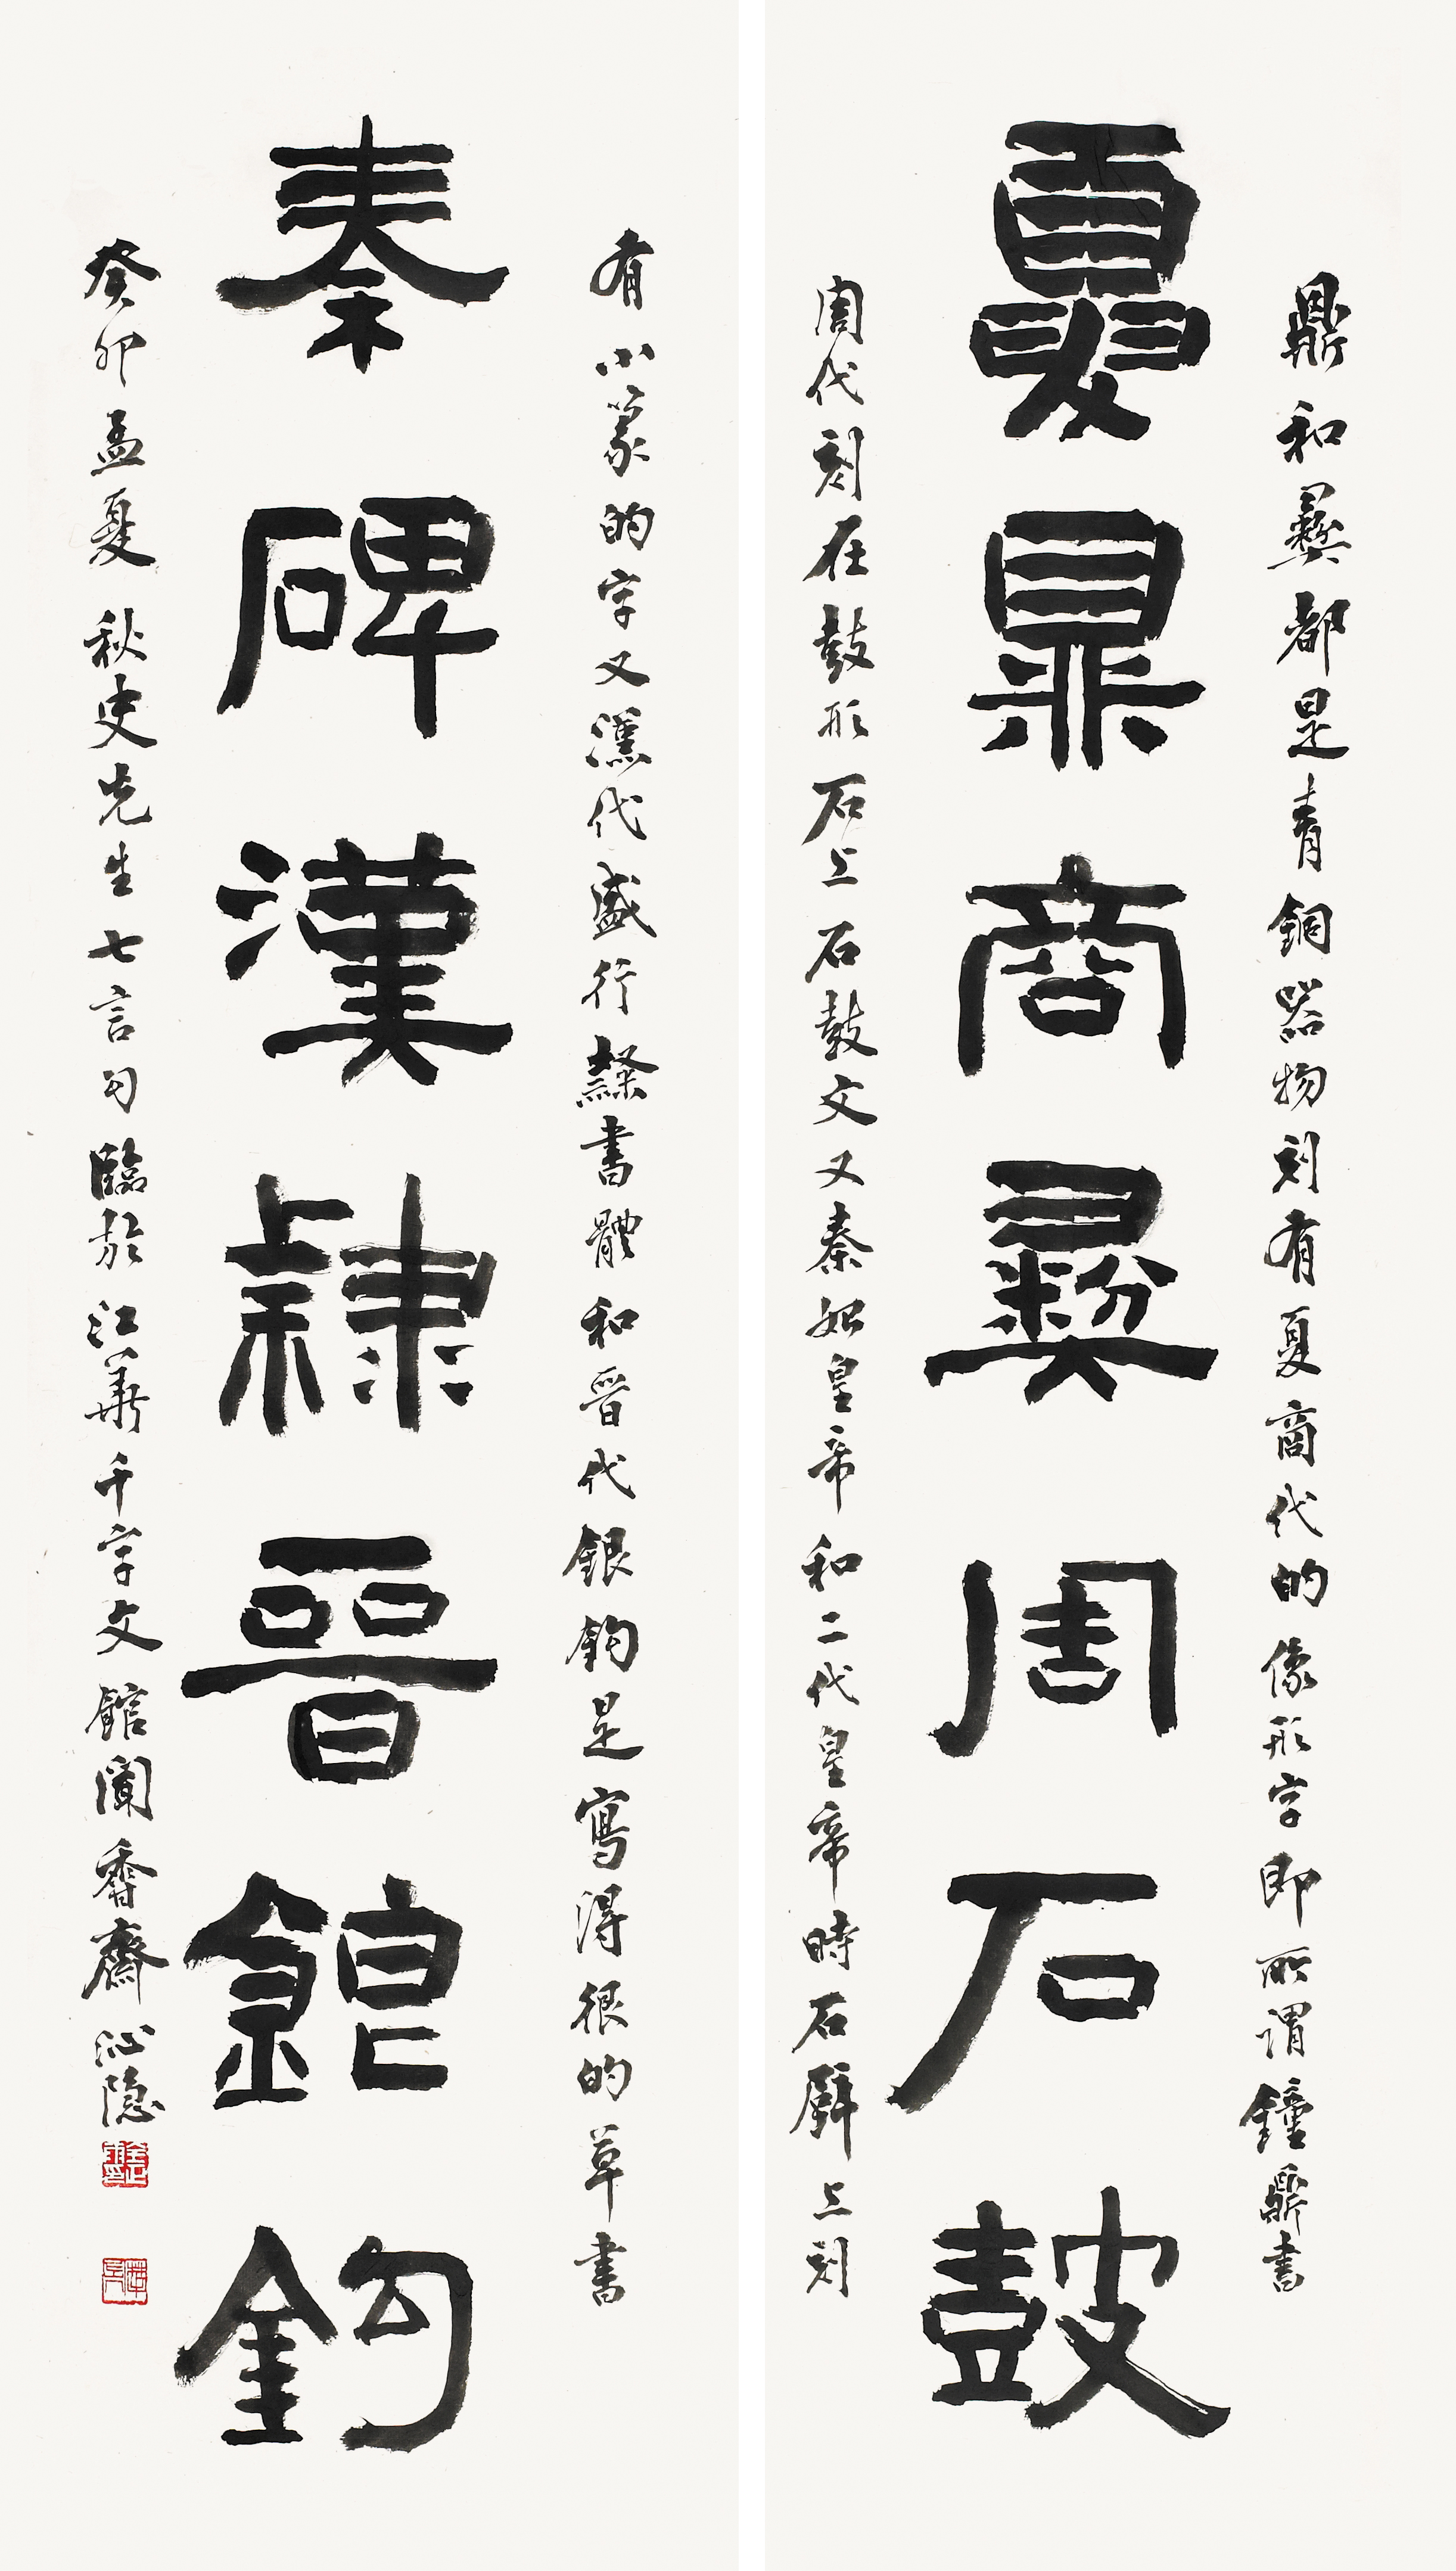 鼎和彝都是青銅器物刻有夏商代的像形字即所謂鐘鼎書
夏鼎商彝周石鼓
周代刻在鼓形石上石鼓文又秦始皇帝和二代皇帝時石壁上刻
有小篆的字又漢代盛行隸書體和晉代銀鈎是寫得很的草書
秦碑漢隸晉銀鈎
癸卯孟夏秋史先生七言句臨於江華千字文館聞香齋沁隐